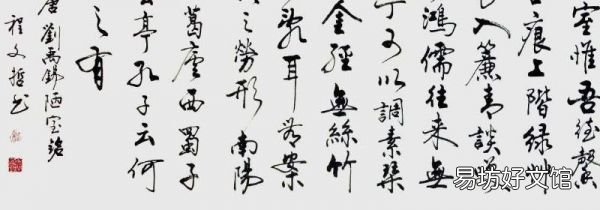 室惟吾德馨
痕上階緑艸
入簾青談笑
鴻儒往來無
丁可以調素琴
金經無絲竹
亂耳無案
之勞形南陽
葛廬西蜀子
云亭孔子云何
之有
唐劉禹錫陋室銘
程文哲书
易坊好文馆